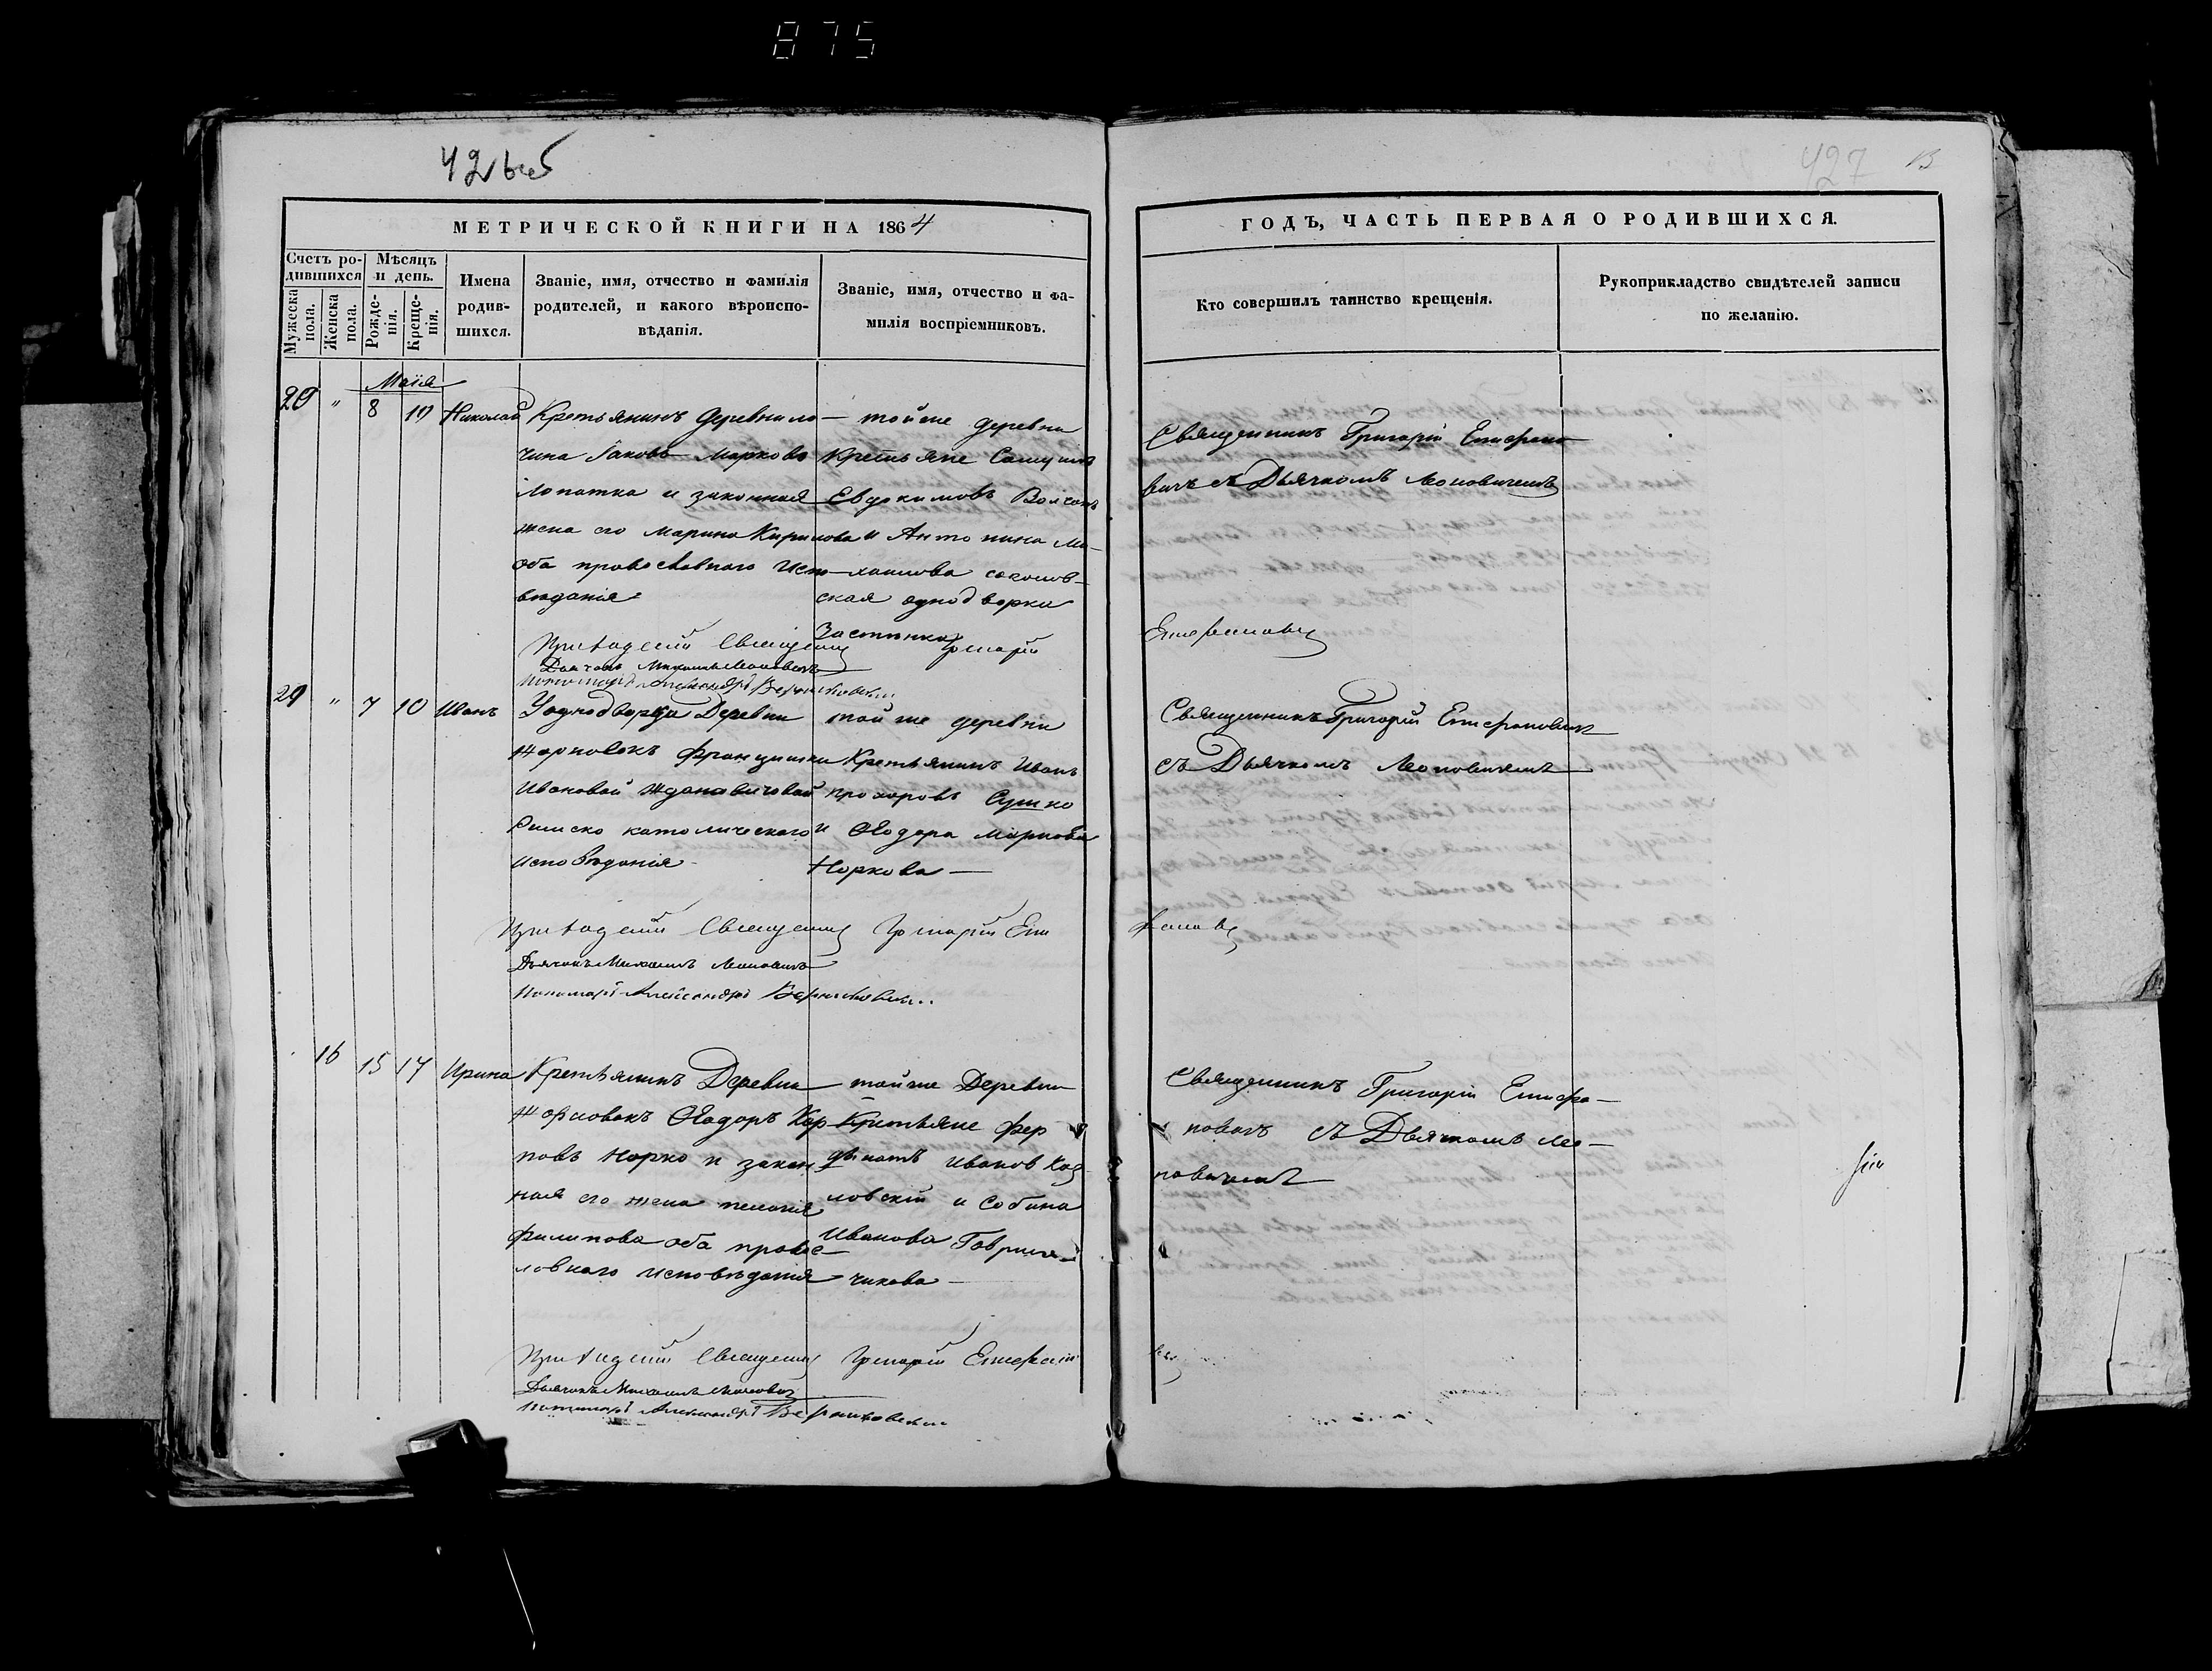 875
426об
427
13
МЕТРИЧЕСКОЙ КНИГИ НА 1864
ГОДЪ, ЧАСТЬ ПЕРВАЯ О РОДИВШИХСЯ.
Счетъ ро-
дившихся
Мѣсяцъ
и день.
Мужеска
пола.
Женска
пола.
Рожде-
нія.
Креще-
нія.
Имена
родив-
шихся.
Званіе, имя, отчество и фамилія
родителей, и какого вѣроиспо-
вѣданія.
Званіе, имя, отчество и фа-
милія воспріемниковъ.
Кто совершилъ таинство крещенія.
Рукоприкладство свидѣтелей записи
по желанію.
Маія
20 " 8 10 Николай
Кретьянинъ деревни ло-
чина Іаковъ Марковъ
Лопатка и законная
жена его Марина Кирилова
оба православнаго испо-
вѣданія
тойже деревни
Кретьяне
Евдокимовъ
и Антонина Ми-
хаилова
ская однодворка
Застѣнка
Священникъ Григорій Епифано-
вичъ съ Дьячкомъ
Приходскій Священникъ Григорій
Епифановичъ
Дьячокъ Михаилъ
Пономарь Александръ
" 7 10 Иванъ
У однодворки Деревни
Жорновокъ Францишки
Ивановой Ждановичовой
Римско католическаго
исповѣданія
той же деревни
Кретьянинъ Иванъ
Прохоровъ Сушко
и Ѳеодора Маркова
Норкова
Священникъ Григорій Епифановичъ
съ Дьячкомъ
Приходскій Священникъ Григорій Епи
фановичъ
Дьячокъ Михаилъ
Пономарь Александръ
16 15 17 Ирина
Кретьянинъ Деревни
Жорновокъ Ѳеодоръ Кар-
повъ Норко и закон
ная его жена
Филипова оба правос-
лавнаго исповѣданія
тойже Деревни
Кретьяне Фер
дынатъ Иванов Коз-
ловскій и Собина
Иванова Гаврил-
чикова
Священникъ Григорій Епифа-
новичъ съ Дьячкомъ
Приходскій Священникъ Григорій Епифано
Дьячокъ Михаилъ
Пономарь Александръ